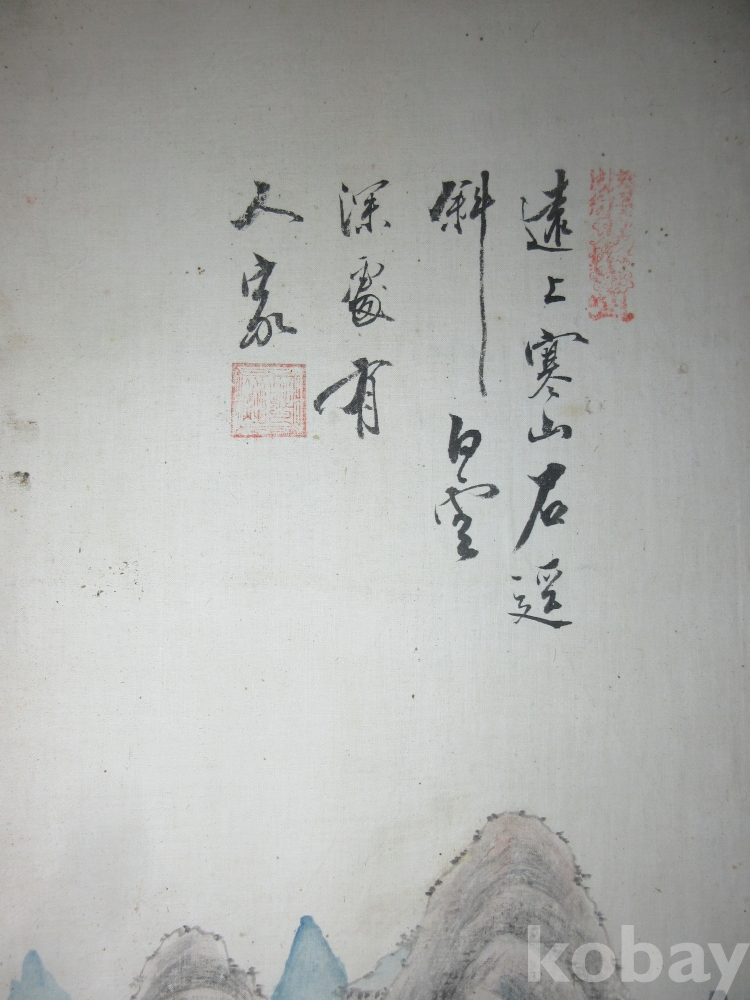 遠上寒山石逕
斜白雲
深處有
人家
kobay